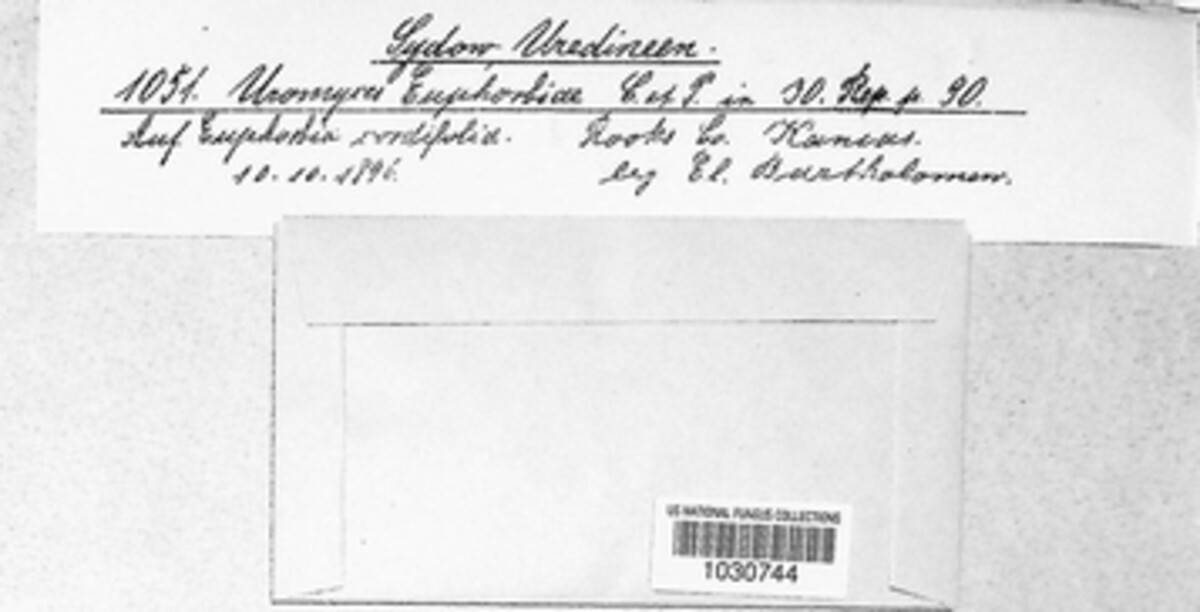 Sydow, Uredineen.
1051. Uromyces Euphorbiae C. et P. in 30. Rep. p. 90.
Auf Euphorbia cordifolia. Rooks Co. Kansas.
10. 10. 1896. leg El. Bartholomew.
US NATIONAL FUNGUS COLLECTIONS
1030744